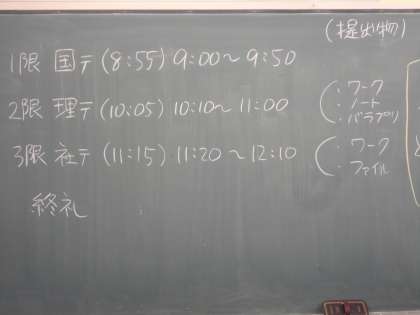 (提出物)
1限 国テ (8:55) 9:00〜9:50
2限 理テ (10:05) 10:10〜11:00
・ワーク
・ノート
・バラプリ
3限 社テ (11:15) 11:20〜12:10
・ワーク
・ファイル
終礼